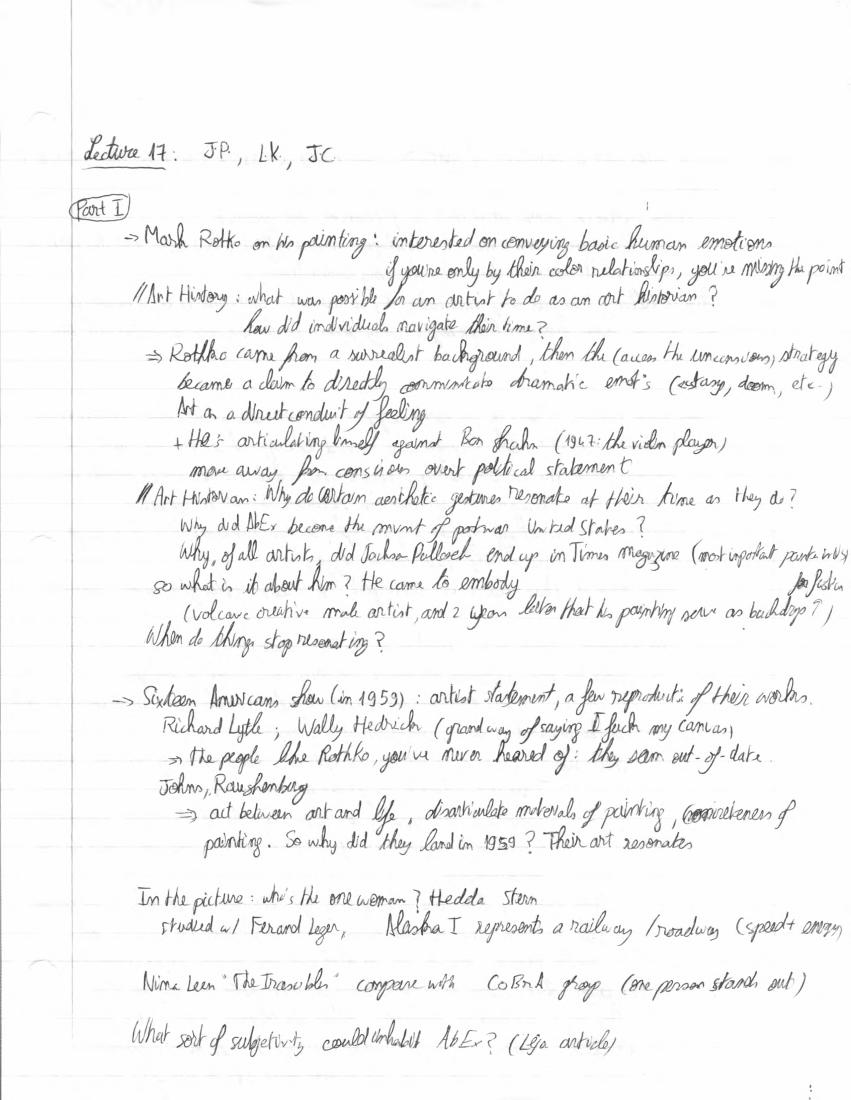 Lecture 17: J.P., L.K., JC
Part I
→ Mark Rotko on his painting: interested on conveying basic human emotions
if you're only by their color relationships, you're missing the point
// Art History: what was possible for an artist to do as an art historian?
how did individuals navigate their time?
⇒ Rothko came from a surrealist background, then the (access the unconscious) strategy
became a claim to directly communicate dramatic emot°s (ectasy, doom, etc-)
Art as a direct conduit of feeling
+ He's articulating himself against Ben Shahn (1947: the violin player)
move away from conscious overt political statement
// Art Historian: Why do certain aesthetic gestures resonate at their time as they do?
Why did AbEx become the mvmt of postwar United States?
Why, of all artists, did Jackson Pollock end up in Times magazine (most important painter in US)
so what is it about him? He came to embody
(volcanic creative male artist, and 2 years later that his painting serve as backdrop?)
When do things stop resonating?
→ Sixteen Americans show (in 1959): artist statement, a few reproduct°s of their works.
Richard Lytle; Wally Hedrick (grand way of saying I fuck my canvas)
⇒ the people like Rothko, you've never heard of: they seem out-of-date.
Johns, Raushenberg
⇒ act between art and life, disarticulate materials of painting, concreteness of
painting. So why did they land in 1959? Their art resonates
In the picture: who's the one woman? Hedda Stern
studied w/ Ferand Leger, Alaska I represents a railway / roadway (speed + energy
Nina Leen "The Irascibles" compare with CoBrA group (one person stands out)
What sort of subjetivity could inhabit AbEx? (Leja article)